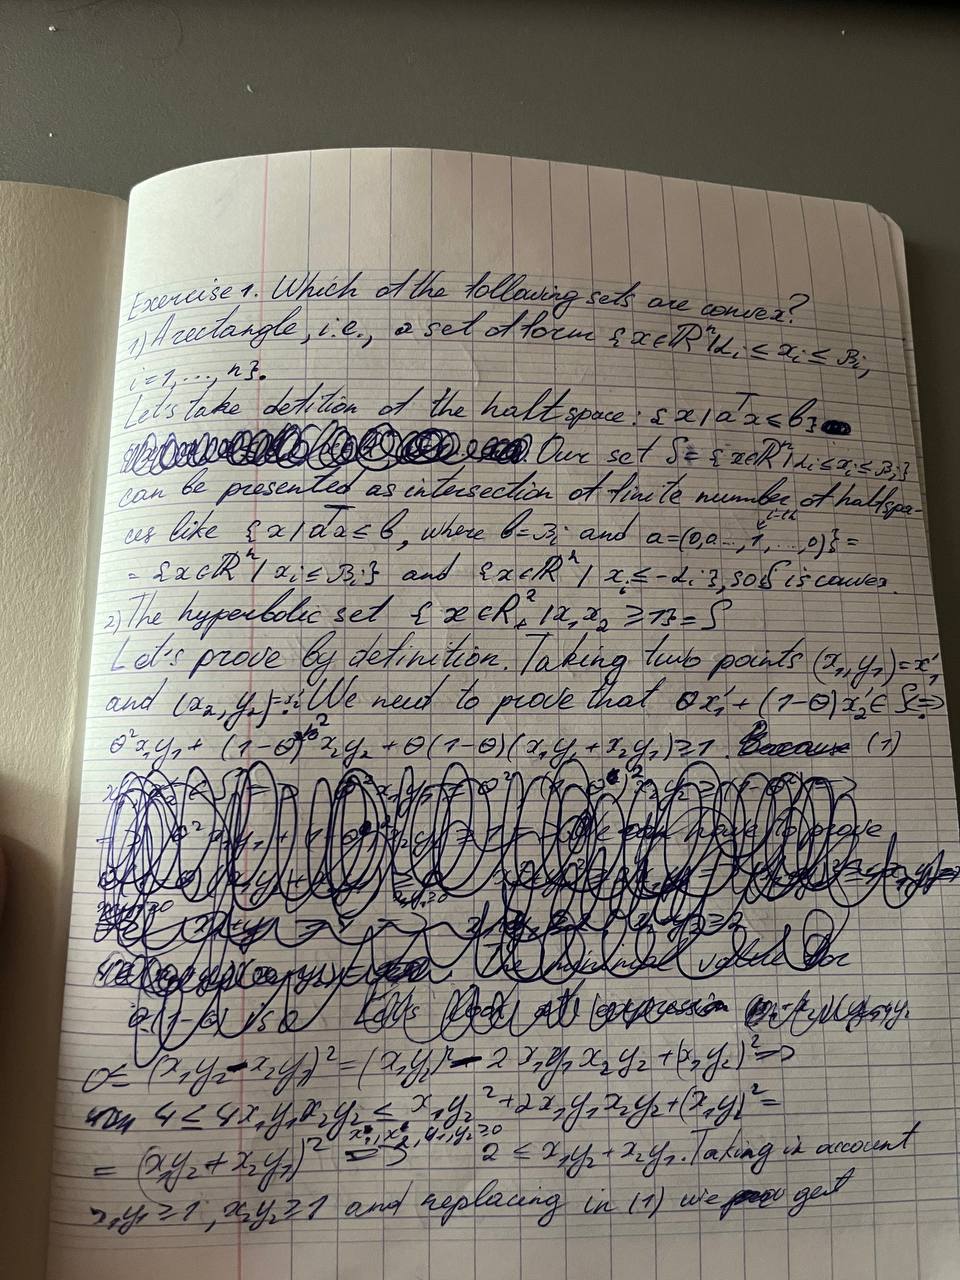 Exercise 1. Which of the following sets are convex?
1) A rectangle, i.e., a set of form {x∈ℝⁿ| αᵢ ≤ xᵢ ≤ βᵢ,
i=1,...,n}.
Let's take defition of the halfspace: {x | aᵀx ≤ b}
Our set S = {x∈ℝⁿ| αᵢ ≤ xᵢ ≤ βᵢ}
can be presented as intersection of finite number of halfspa-
ces like {x | aᵀx ≤ b, where b=βᵢ and a=(0,0...,1,...,0)} =
= {x∈ℝⁿ | xᵢ ≤ βᵢ} and {x∈ℝⁿ | xᵢ ≤ -αᵢ}, so S is convex.
2) The hyperbolic set { x ∈ R₊² | x₁x₂ ≥ 1} = S
Let's prove by definition. Taking two points (x₁,y₁)=x₁'
and (x₂,y₂)=x₂'. We need to prove that θx₁' + (1-θ)x₂' ∈ S <=>
θ²x₁y₁ + (1-θ)²x₂y₂ + θ(1-θ)(x₁y₂+x₂y₁) ≥ 1. (1)
0 ≤ (x₁y₂ - x₂y₁)² = (x₁y₂)² - 2x₁y₁x₂y₂ + (x₂y₁)² =>
4 ≤ 4x₁y₁x₂y₂ ≤ x₁y₂² + 2x₁y₁x₂y₂ + (x₂y₁)² =
= (x₁y₂ + x₂y₁)² => 2 ≤ x₁y₂ + x₂y₁. Taking in account
x₁y₁ ≥ 1, x₂y₂ ≥ 1 and replacing in (1) we get